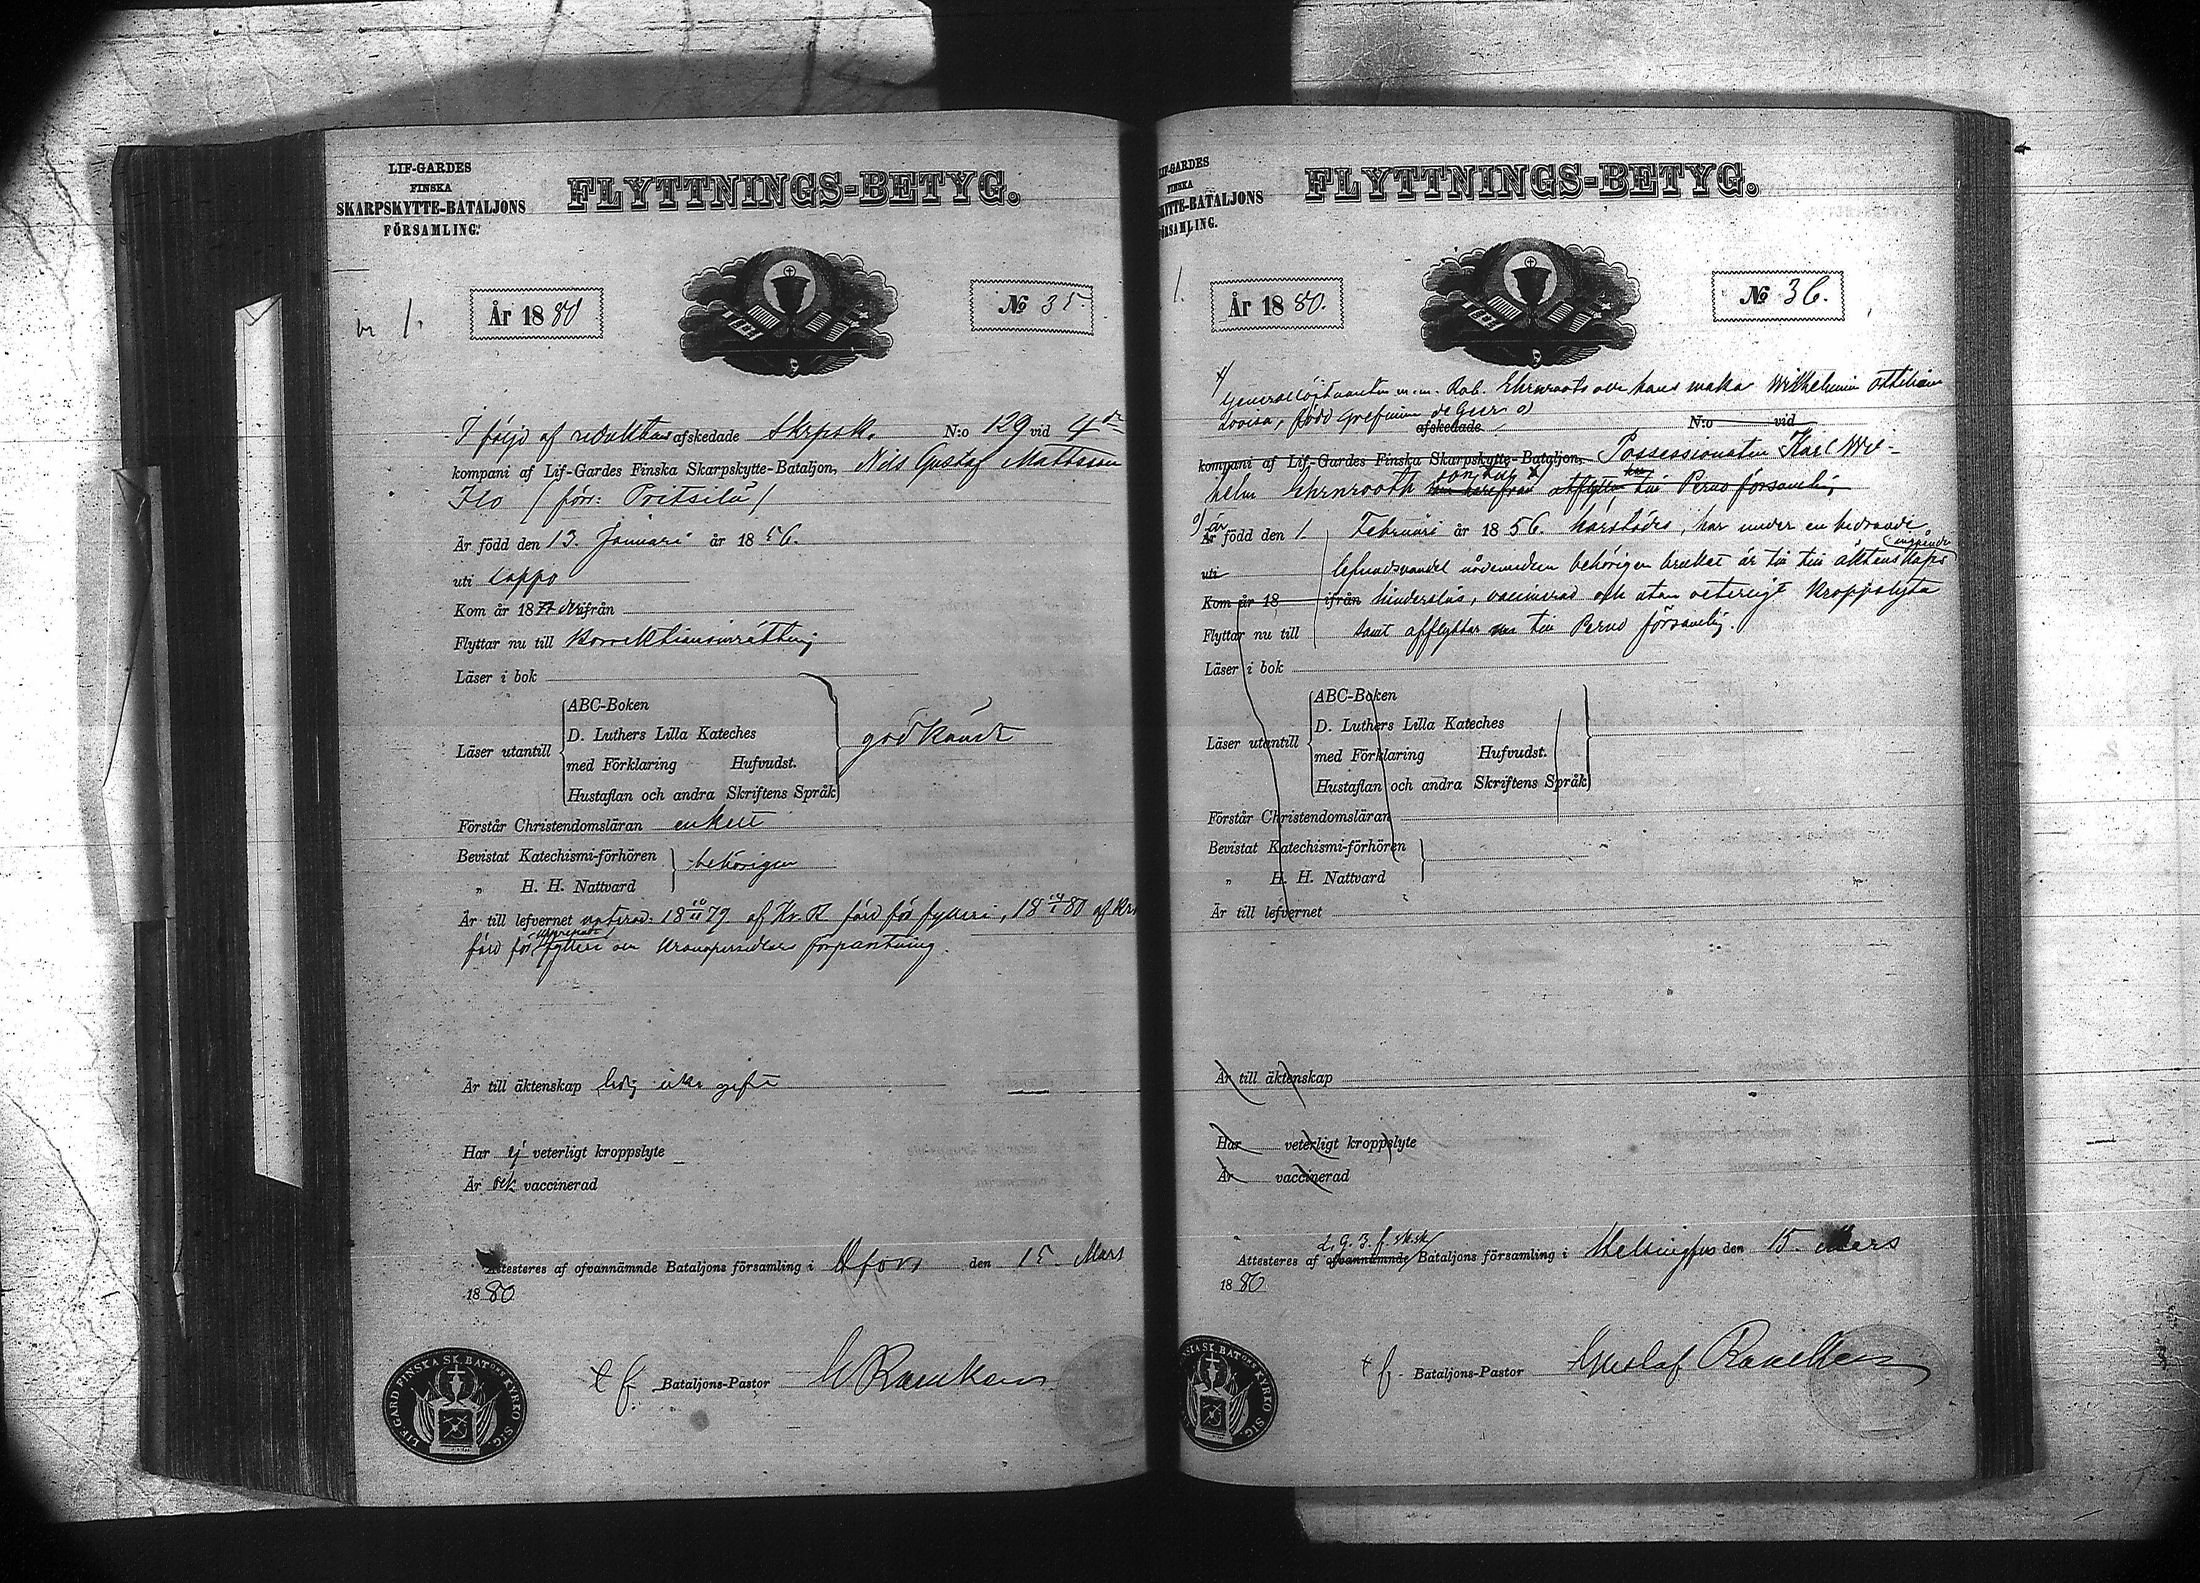 LIF-GARDES
FINSKA
SKARPSKYTTE-BATALJONS
FÖRSAMLING.
FLYTTNINGS-BETYG.
1.
År 1880
No 35.
I följd af afskedade Skrpsk. N:o 129 vid 4de
kompani af Lif-Gardes Finska Skarpskytte-Bataljon, Nils Gustaf Mattsson
Ilo / förr: Pritsilä /
Är född den 13. Januari år 1856.
uti Lappo
Kom år 1877 ifrån
Flyttar nu till Korrektionsinrättning
Läser i bok
Läser utantill
ABC-Boken
D. Luthers Lilla Kateches
med Förklaring Hufvudst.
Hustaflan och andra Skriftens Språk
godkändt
Förstår Christendomsläran enkelt
Bevistat Katechismi-förhören
" H. H. Nattvard
behörigen
Är till lefvernet noterad: 1879 af Kr. R fäld för fylleri, 1880 af Kr
fäld för fylleri och förpantning.
Är till äktenskap ledig icke gift
Har ej veterligt kroppslyte
Är vaccinerad
Attesteres af ofvannämnde Bataljons församling i Hfors den 15. Mars
1880
t f. Bataljons-Pastor G Ramken
LIF-GARD FINSKA SK. BATONS KYRKO SIG.
LIF-GARDES
FINSKA
SKYTTE-BATALJONS
FÖRSAMLING.
FLYTTNINGS-BETYG.
1.
År 1880.
No 36.
Generallöjtnanten m.m. Rob. Ehrnrooths och hans maka Wilhelmina
Lovisa, född grefvinna de Geer
afskedade N:o vid
kompani af Lif-Gardes Finska Skarpskytte-Bataljon, Possessionaten Karl Wil-
helm Ehrnrooth afflyttar till Perno församling
är född den 1. Februari år 1856. har under en
uti lefnadsvandel nådemedlen behörigen brukat är till äktenskaps
ingående
Kom år 18 ifrån hinderslös, vaccinerad och utan veterligt kroppslyte
Flyttar nu till samt afflyttar nu till Perno församling.
Läser i bok
Läser utantill
ABC-Boken
D. Luthers Lilla Kateches
med Förklaring Hufvudst.
Hustaflan och andra Skriftens Språk
Förstår Christendomsläran
Bevistat Katechismi-förhören
" H. H. Nattvard
Är till lefvernet
Är till äktenskap
Har veterligt kroppslyte
Är vaccinerad
Attesteres af ofvannämnde Bataljons församling i Helsingfors den 15. Mars
1880
t f. Bataljons-Pastor Gustaf Ramken
SK. BATONS KYRKO SIG.